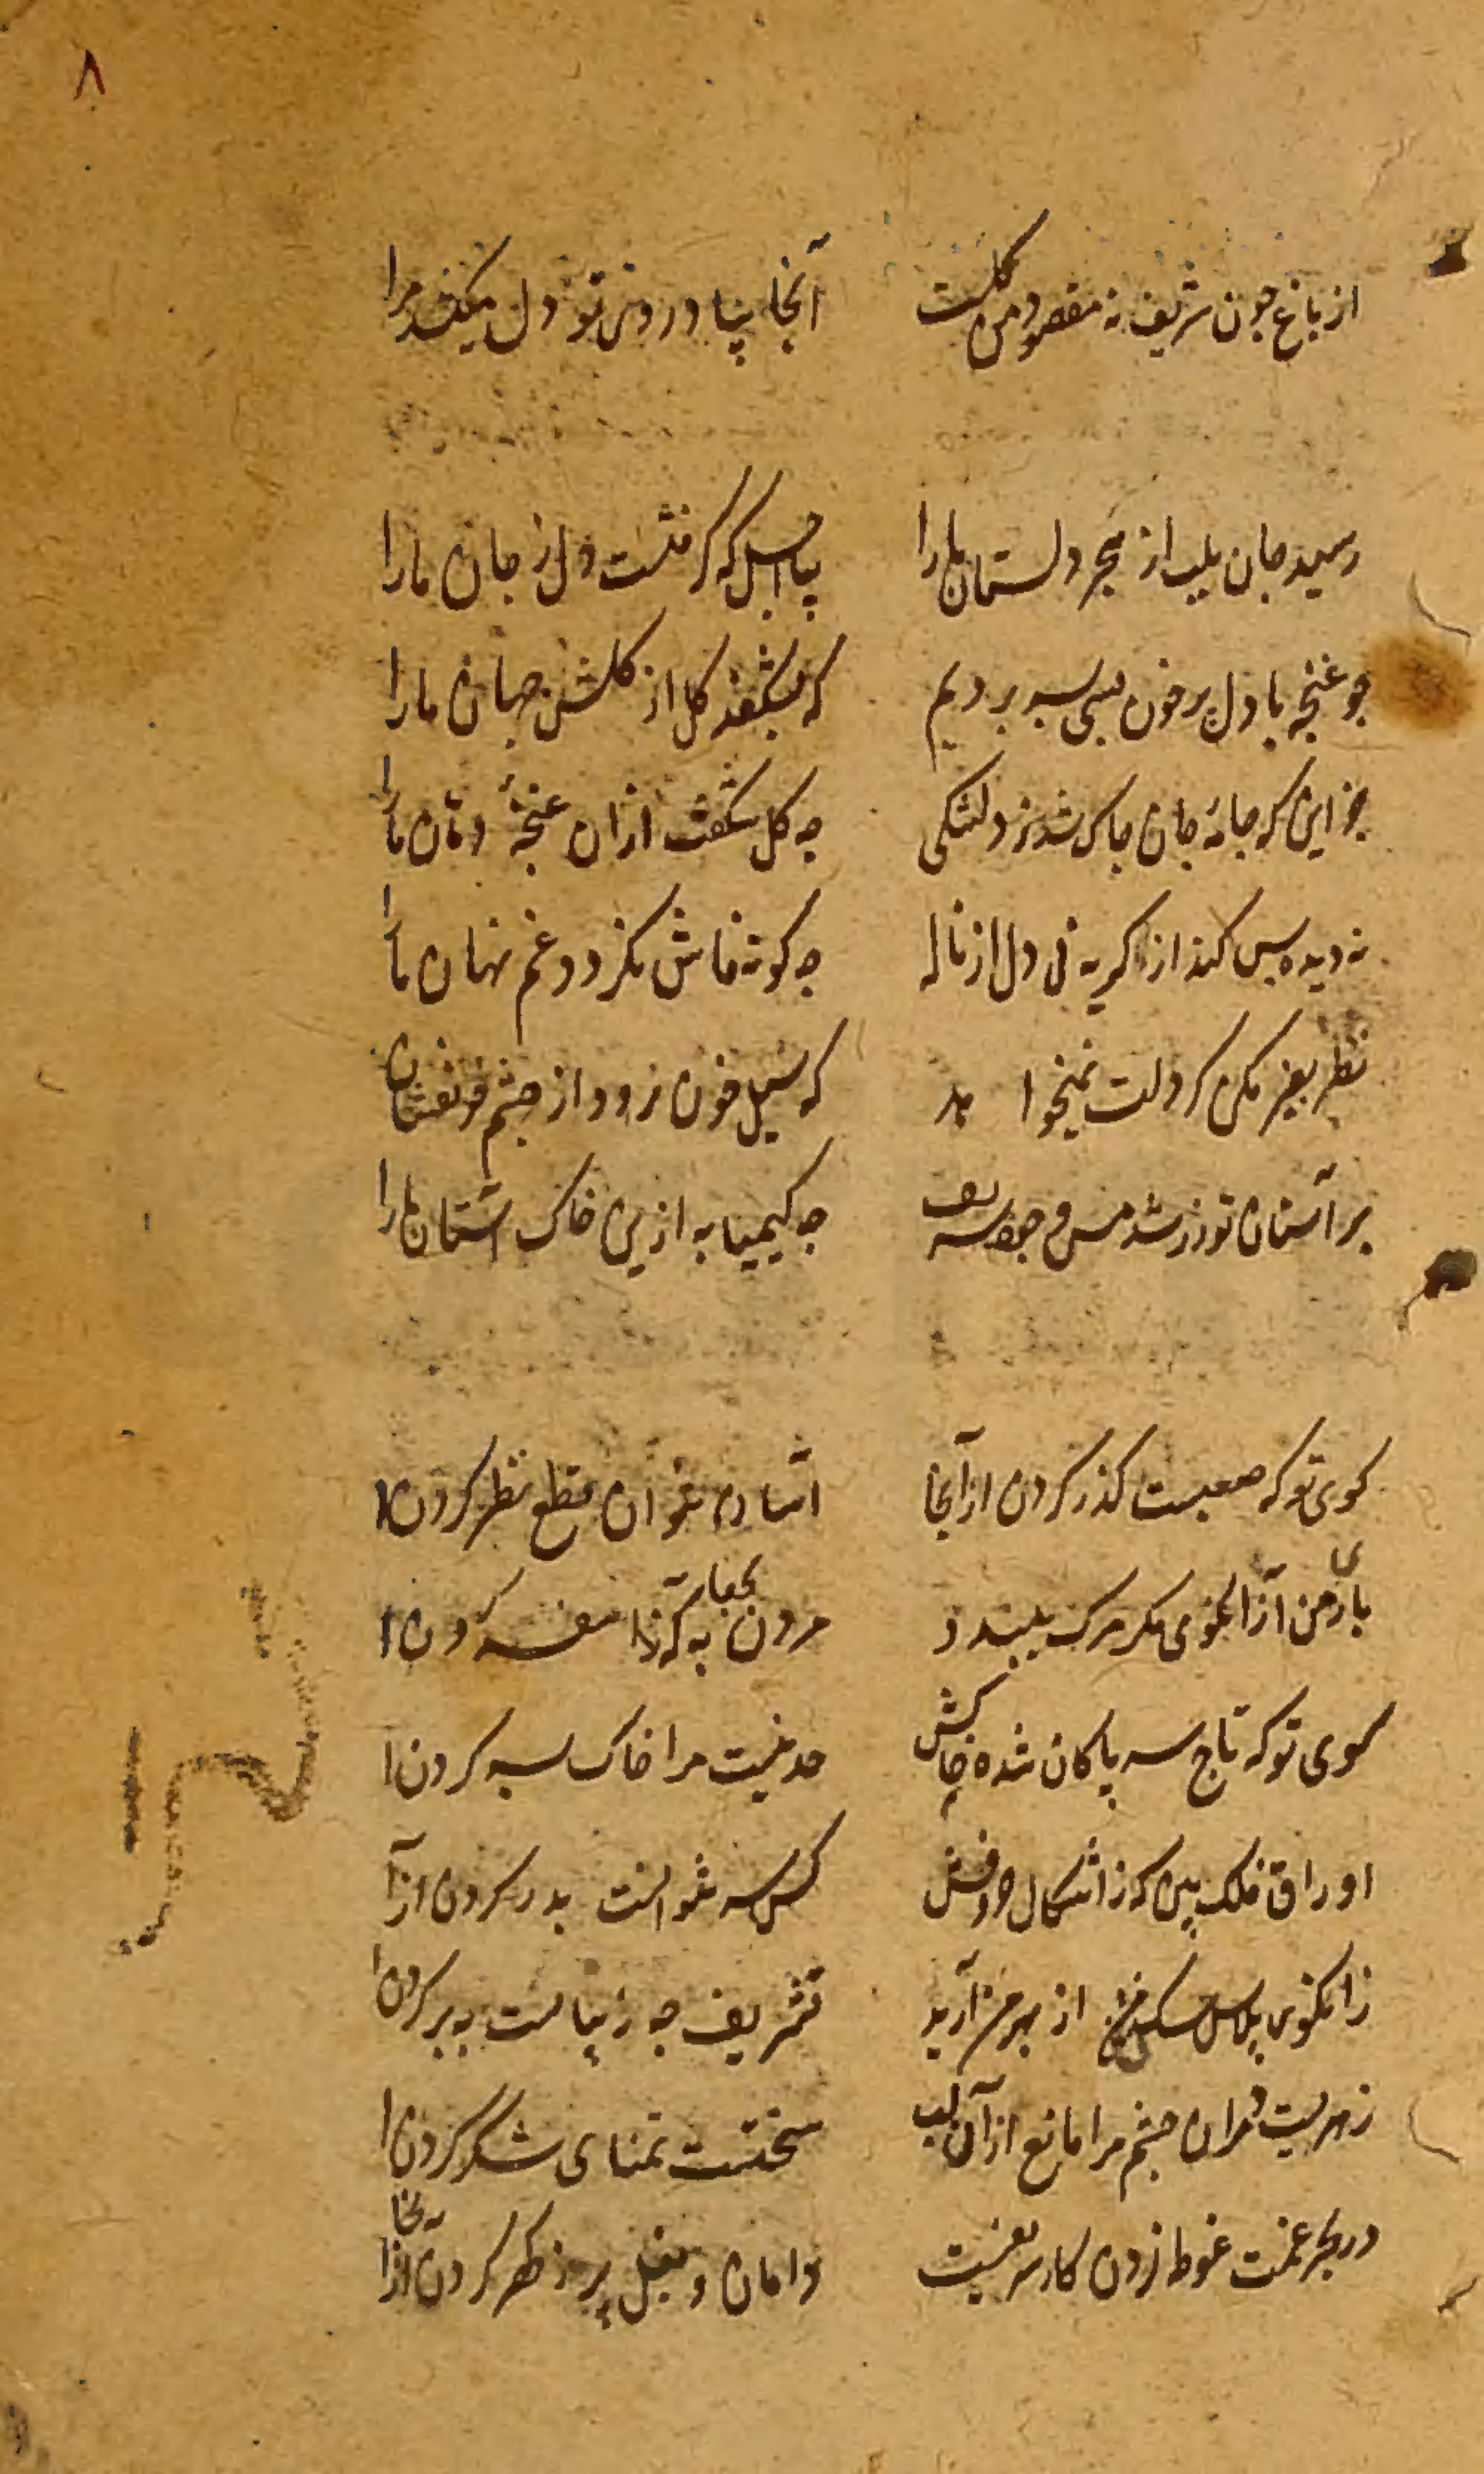 ۸
از باغ جون شریف نه مقصود من کلست آنجا بیاد روی تو دل میکشد مرا
رسید جان بلب از هجر دلستان ما را بیا اجل که گرفتست دل ز جان ما را
جو غنجه با دل پر خون بسی بسر بردیم که بشکفد کل از کلشن جهان ما را
جز این که جامهٔ جان جاک شد ز دلتنکی جه کل شکفت ازان غنجهٔ دهان ما را
نه دیده بس کند از کریه نی دل از ناله جه کونه فاش نکردد غم نهان ما را
نظر بغیر مکن کر دلت نمیخواهد که سیل خون رود از جشم خونفشان
بر آستان تو زر شد مس وجود شریف جه کیمیا به ازین خاک آستان ما را
کوی تو که صعبست کذر کردن از آنجا آسان نتوان قطع نظر کردن
یاری من آزا نکوی مکر مرک ببندد مردن بجفا به که سفر کردن
کوی تو که تاج سر پاکان شده خاکش حد نیست مرا خاک بسر کردن
اوراق فلک بین که ز اشکال حروفش کس سر نتوانست بدر کردن از آ
زان کوی پلاس سک از بهر من آرید تشریف جه زیباست به بر کردن
زهریست جشم مرا مانع از آن لب سختست تمنای شکر کردن
در بحر غمت غوطه زدن کار شریفست دامان و بغل پر ز کهر کردن از آنجا